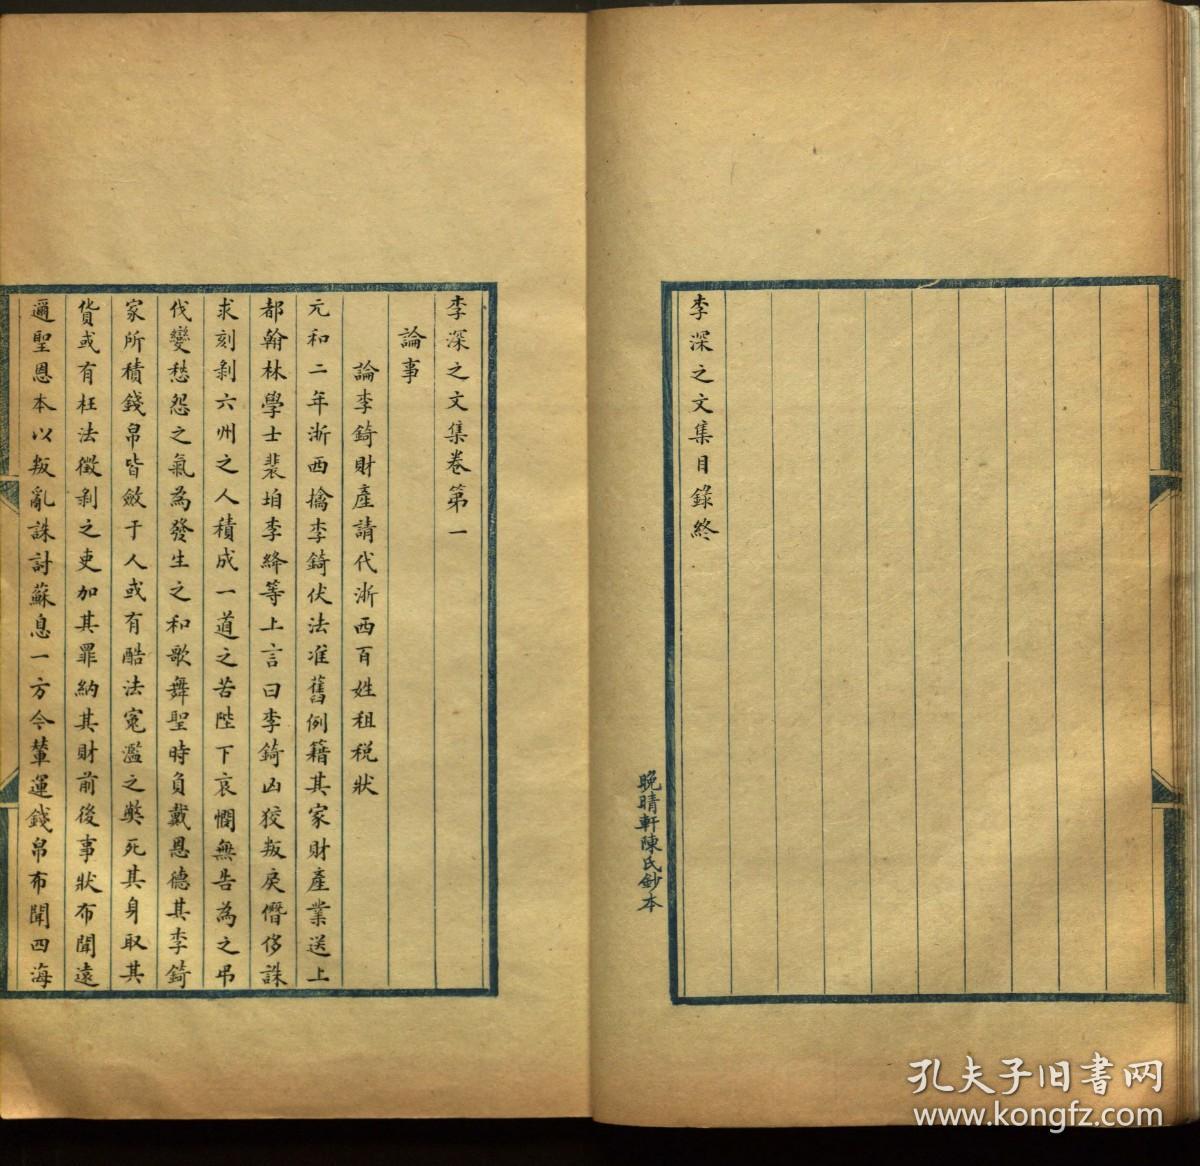 李深之文集目錄終
晚晴軒陳氏鈔本
李深之文集卷第一
論事
論李錡財產請代浙西百姓租稅狀
元和二年浙西擒李錡伏法准舊例籍其家財產業送上
都翰林學士裴垍李絳等上言曰李錡凶狡叛戾僭侈誅
求刻剝六州之人積成一道之苦陛下哀憫無告為之弔
伐變愁怨之氣為發生之和歌舞聖時負戴恩德其李錡
家所積錢帛皆斂于人或有酷法冤濫之弊死其身取其
貨或有枉法徵剝之吏加其罪納其財前後事狀布聞遠
邇聖恩本以叛亂誅討蘇息一方今輦運錢帛布聞四海
孔夫子旧書网
www.kongfz.com